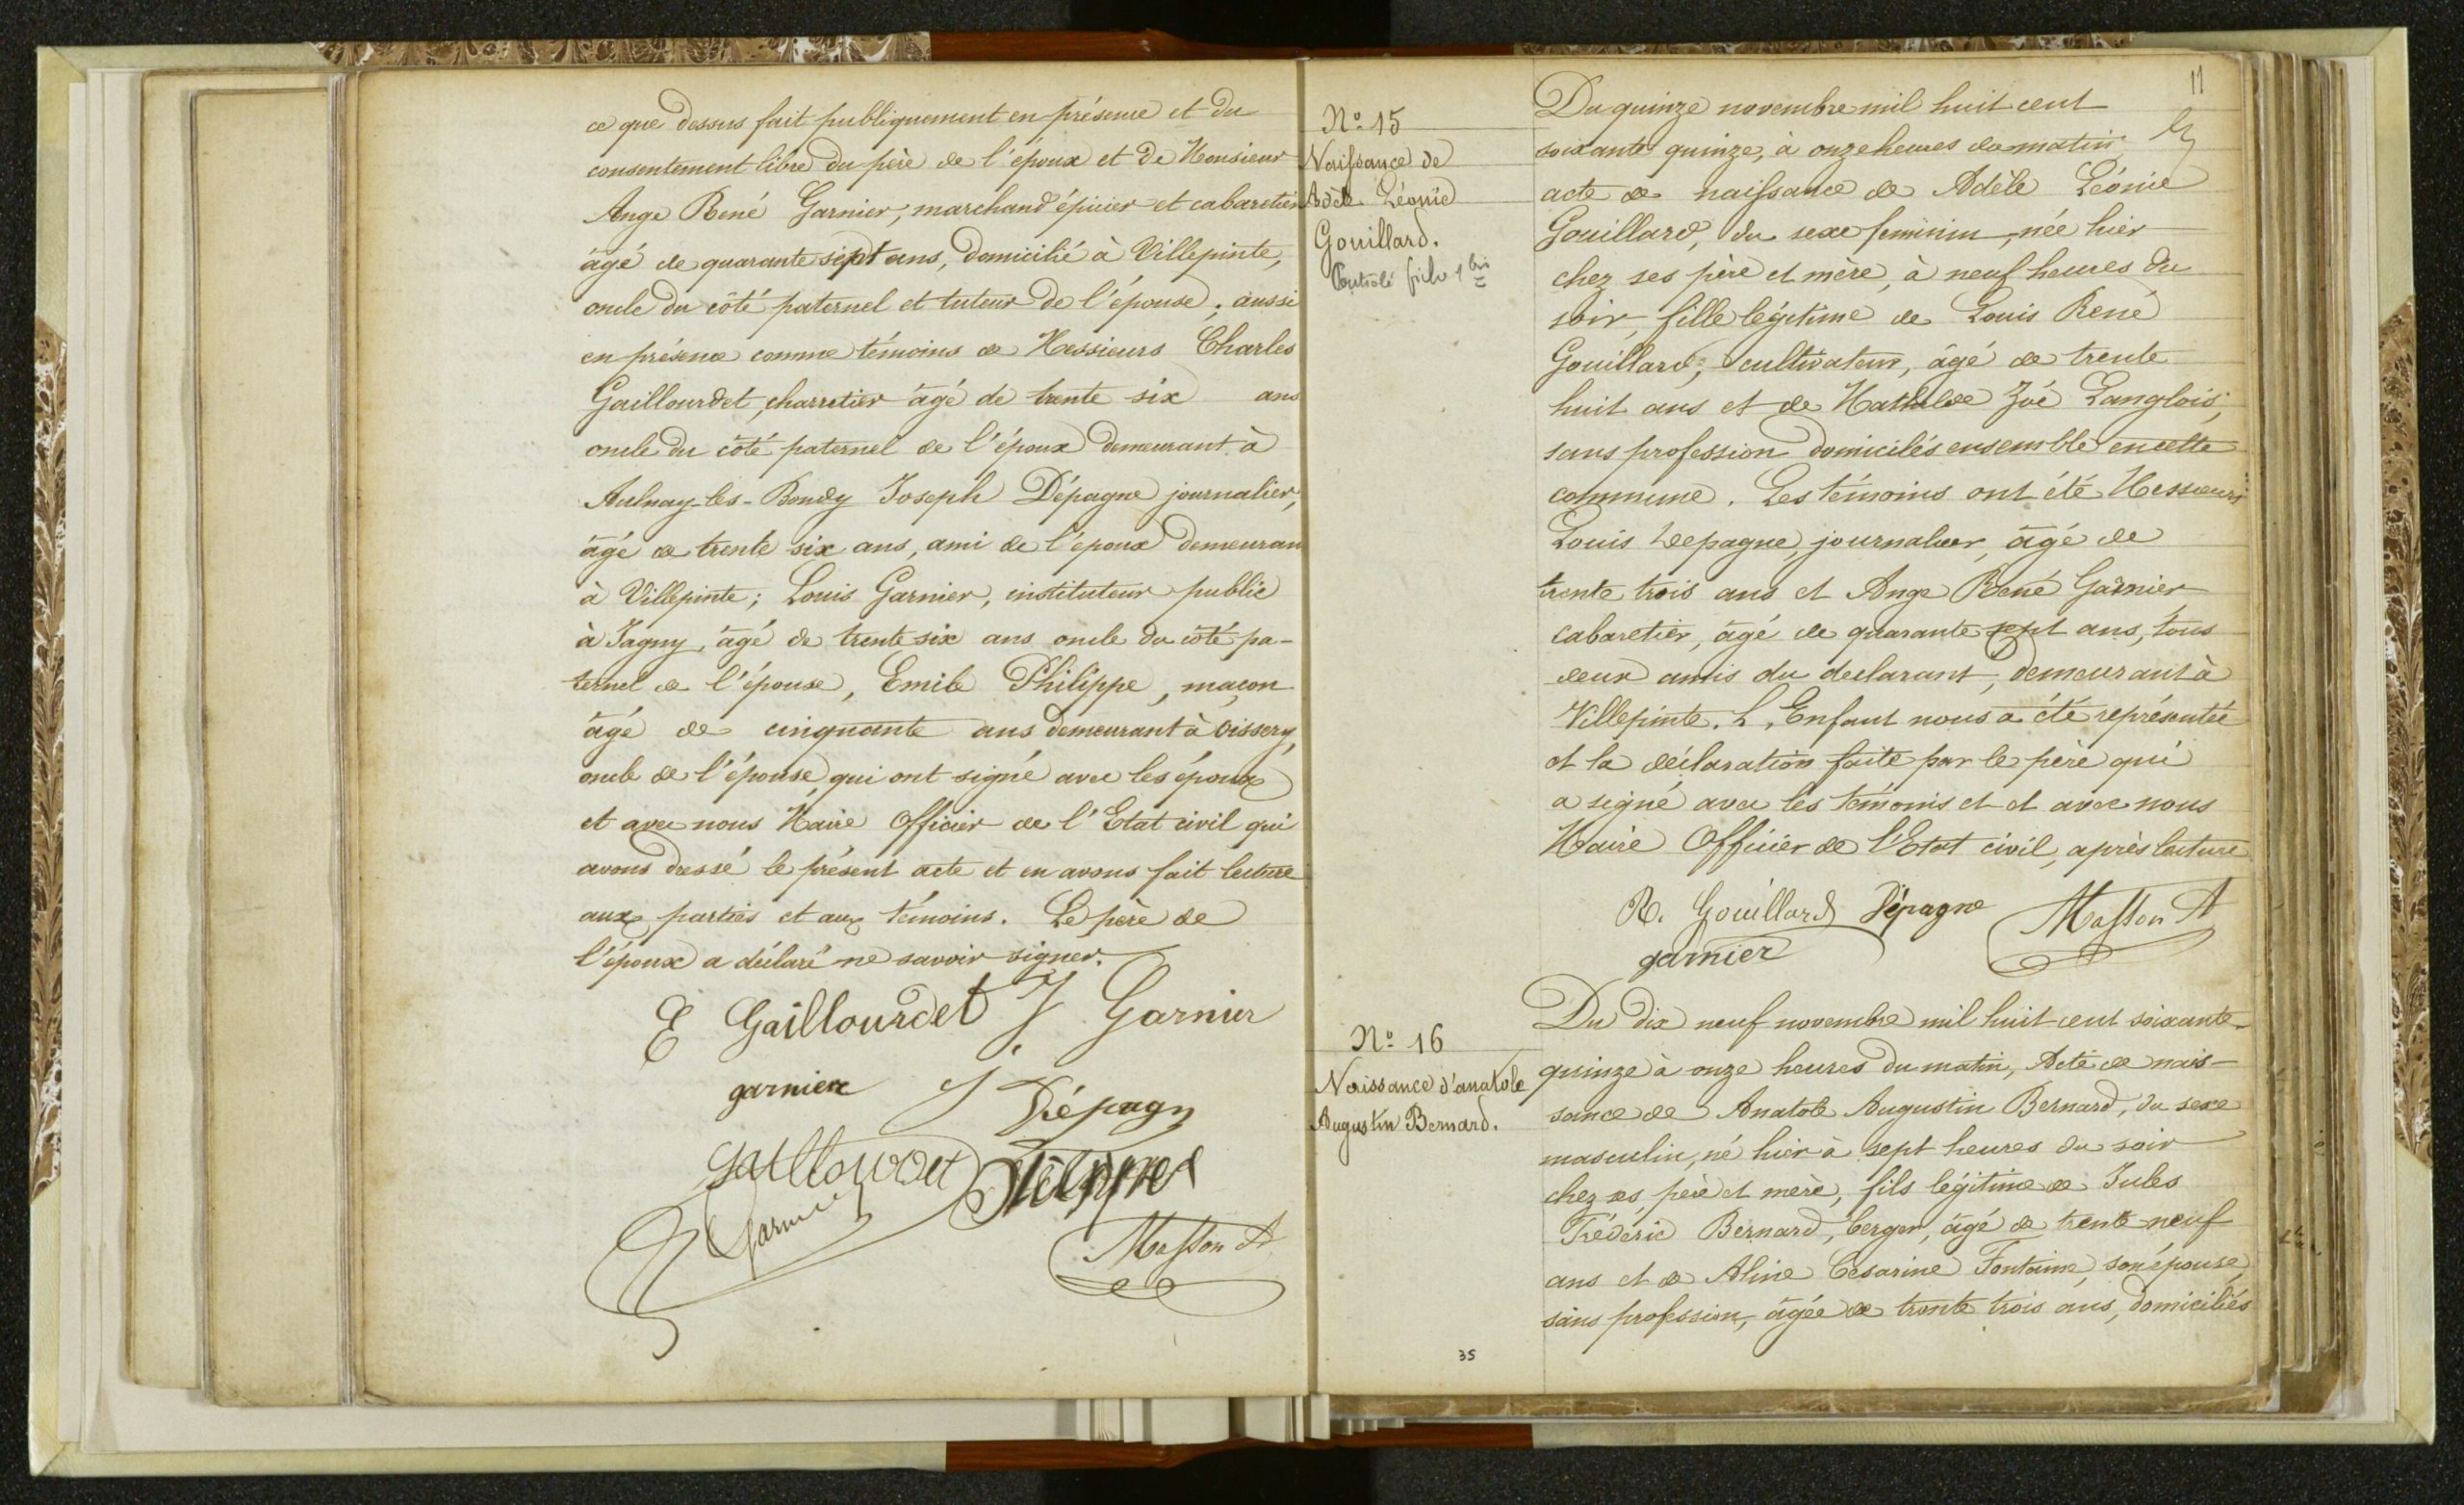 ce que dessus fait publiquement en présence et du
consentement libre du père de l'époux et de Monsieur
Ange René Garnier, marchand épicier et cabaretier
âgé de quarante sept ans, domicilié à Villepinte,
oncle du côté paternel et tuteur de l'épouse ; aussi
en présence comme témoins de Messieurs Charles
Gaillourdet, charretier âgé de trente six ans
oncle du côté paternel de l'époux demeurant à
Aulnay-les-Bondy Joseph Dépagne journalier,
âgé de trente six ans, ami de l'époux demeuran
à Villepinte ; Louis Garnier, instituteur public
à Jagny, âgé de trente six ans oncle du côté pa-
ternel de l'épouse, Emile Philippe, maçon
âgé de cinquante ans demeurant à Oissery,
oncle de l'épouse, qui ont signé avec les époux
et avec nous Maire Officier de l'Etat civil qui
avons dressé le présent acte et en avons fait lecture
aux parties et aux témoins. Le père de
l'époux a déclaré ne savoir signer.
E Gaillourdet J. Garnier
garnier J Dépagn
Gaillourdet
Garnier
Masson A
11
N° 15
Naissance de
Adèle Léonie
Gouillard.
Contrôlé
Du quinze novembre mil huit cent
soixante quinze, à onze heures du matin
acte de naissance de Adèle Léonie
Gouillard, du sexe feminin, née hier
chez ses père et mère, à neuf heures du
soir, fille légitime de Louis René
Gouillard, cultivateur, âgé de trente
huit ans et de Mathilde Zoé Langlois,
sans profession domicilés ensemble en cette
commune. Les témoins ont été Messieurs
Louis Depagne, journalier, âgé de
trente trois ans et Ange René Garnier
cabaretier, âgé de quarante sept ans, tous
deux amis du declarant, demeurant à
Villepinte. L'Enfant nous a été représentée
et la déclaration faite par le père qui
a signé avec les témoins et et avec nous
Maire Officier de l'Etat civil, après lecture
R. Gouillard Dépagne Masson A
garnier
N° 16
Naissance d'anatole
Augustin Bernard.
Du dix neuf novembre mil huit cent soixante-
quinze à onze heures du matin, Acte de nais-
sance de Anatole Augustin Bernard, du sexe
masculin, né hier à sept heures du soir
chez ses père et mère, fils légitime de Jules
Fréderic Bernard, berger, âgé de trente neuf
ans et de Aline Césarine Fontaine, son épouse,
sans profession, âgée de trente trois ans, domiciliés
35